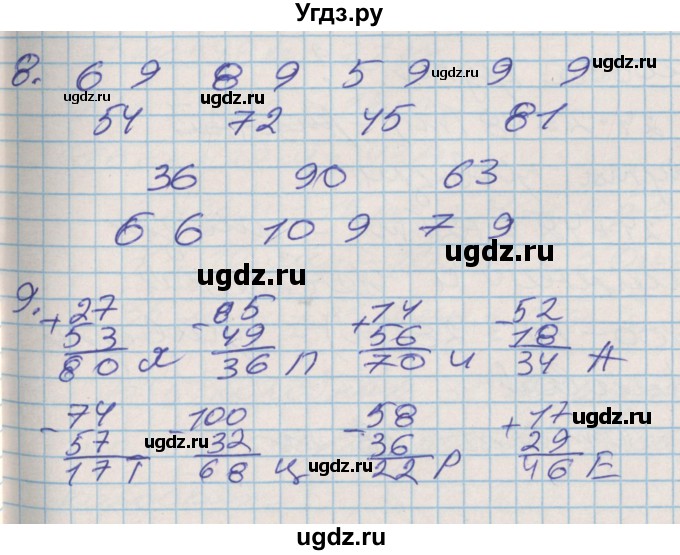 Угдз.ру
8. 6 9 8 9 5 9 9 9
ugdz.ru ugdz.ru ugdz.ru ugdz.ru
54 72 45 81
36 90 63
6 6 10 9 7 9
ugdz.ru ugdz.ru
9. +27 -85 +14 -52
53 49 56 18
80 Я 36 П 70 И 34 А
ugdz.ru
-74 -100 -58 +17
57 32 36 29
17 Т 68 Ц 22 Р 46 Е
ugdz.ru ugdz.ru ugdz.ru
ugdz.ru